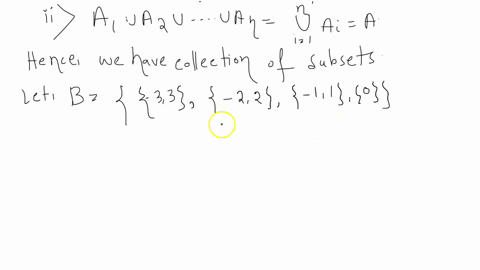 ii> A₁ ∪ A₂ ∪ ..... ∪ Aη = ⋃ⁿᵢ₌₁ Ai = A
Hence, we have collection of subsets
Let, B = { {-3,3}, {-2,2}, {-1,1}, {0}}